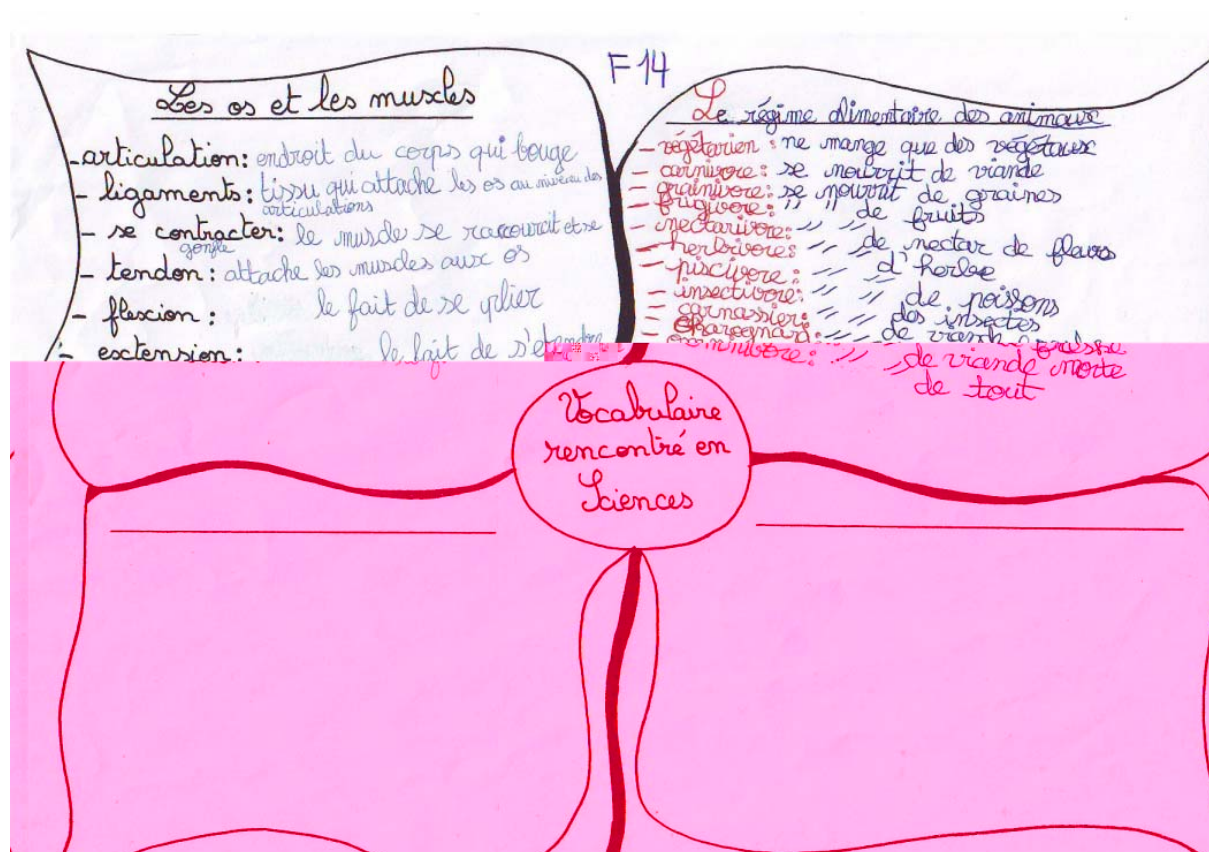 F14
Les os et les muscles
- articulation: endroit du corps qui bouge
- ligaments: tissu qui attache les os au niveau des
articulations
- se contracter: le muscle se raccourcit et se
gonfle
- tendon: attache les muscles aux os
- flexion: le fait de se plier
- extension: le fait de s'étendre
Le régime alimentaire des animaux
- végétarien: ne mange que des végétaux
- carnivore: se nourrit de viande
- grainivore: se nourrit de graines
- frugivore: " " de fruits
- nectarivore: " " de nectar de fleurs
- herbivores " " d'herbe
- piscivore: " " de poissons
- insectivore: " " des insectes
- carnassier: de viande
charognard:
" " de viande morte
de tout
Vocabulaire
rencontré en
Sciences